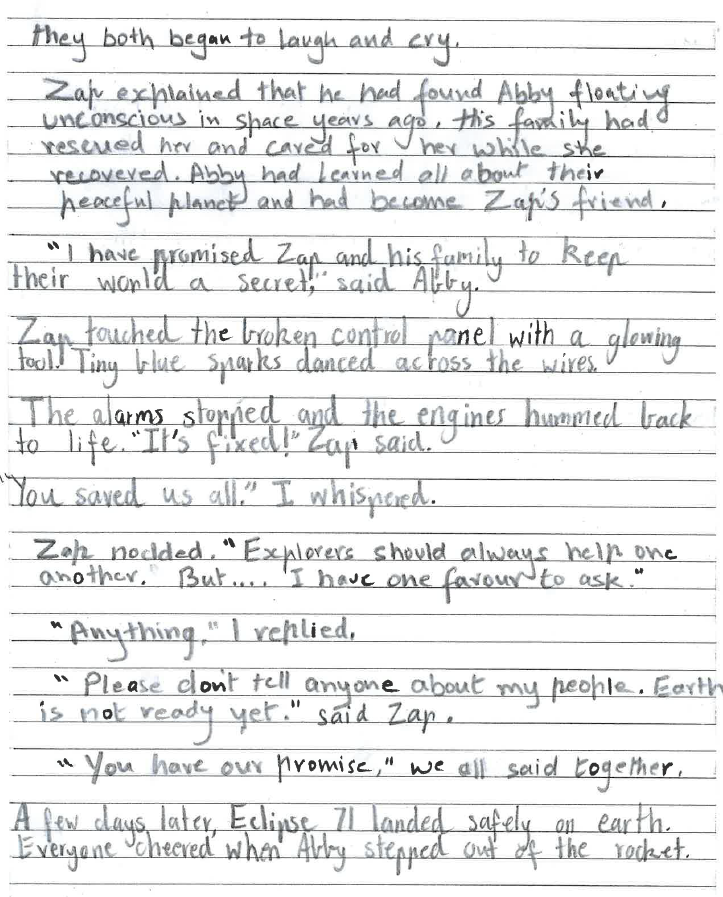 they both began to laugh and cry.
Zap explained that he had found Abby floating
unconscious in space years ago. His family had
rescued her and cared for her while she
recovered. Abby had learned all about their
peaceful planet and had become Zap's friend.
"I have promised Zap and his family to keep
their world a secret," said Abby.
Zap touched the broken control panel with a glowing
tool. Tiny blue sparks danced across the wires.
The alarms stopped and the engines hummed back
to life. "It's fixed!" Zap said.
"You saved us all." I whispered.
Zap nodded. "Explorers should always help one
another. But.... I have one favour to ask."
"Anything," I replied.
"Please don't tell anyone about my people. Earth
is not ready yet." said Zap.
"You have our promise," we all said together.
A few days later, Eclipse 71 landed safely on earth.
Everyone cheered when Abby stepped out of the rocket.